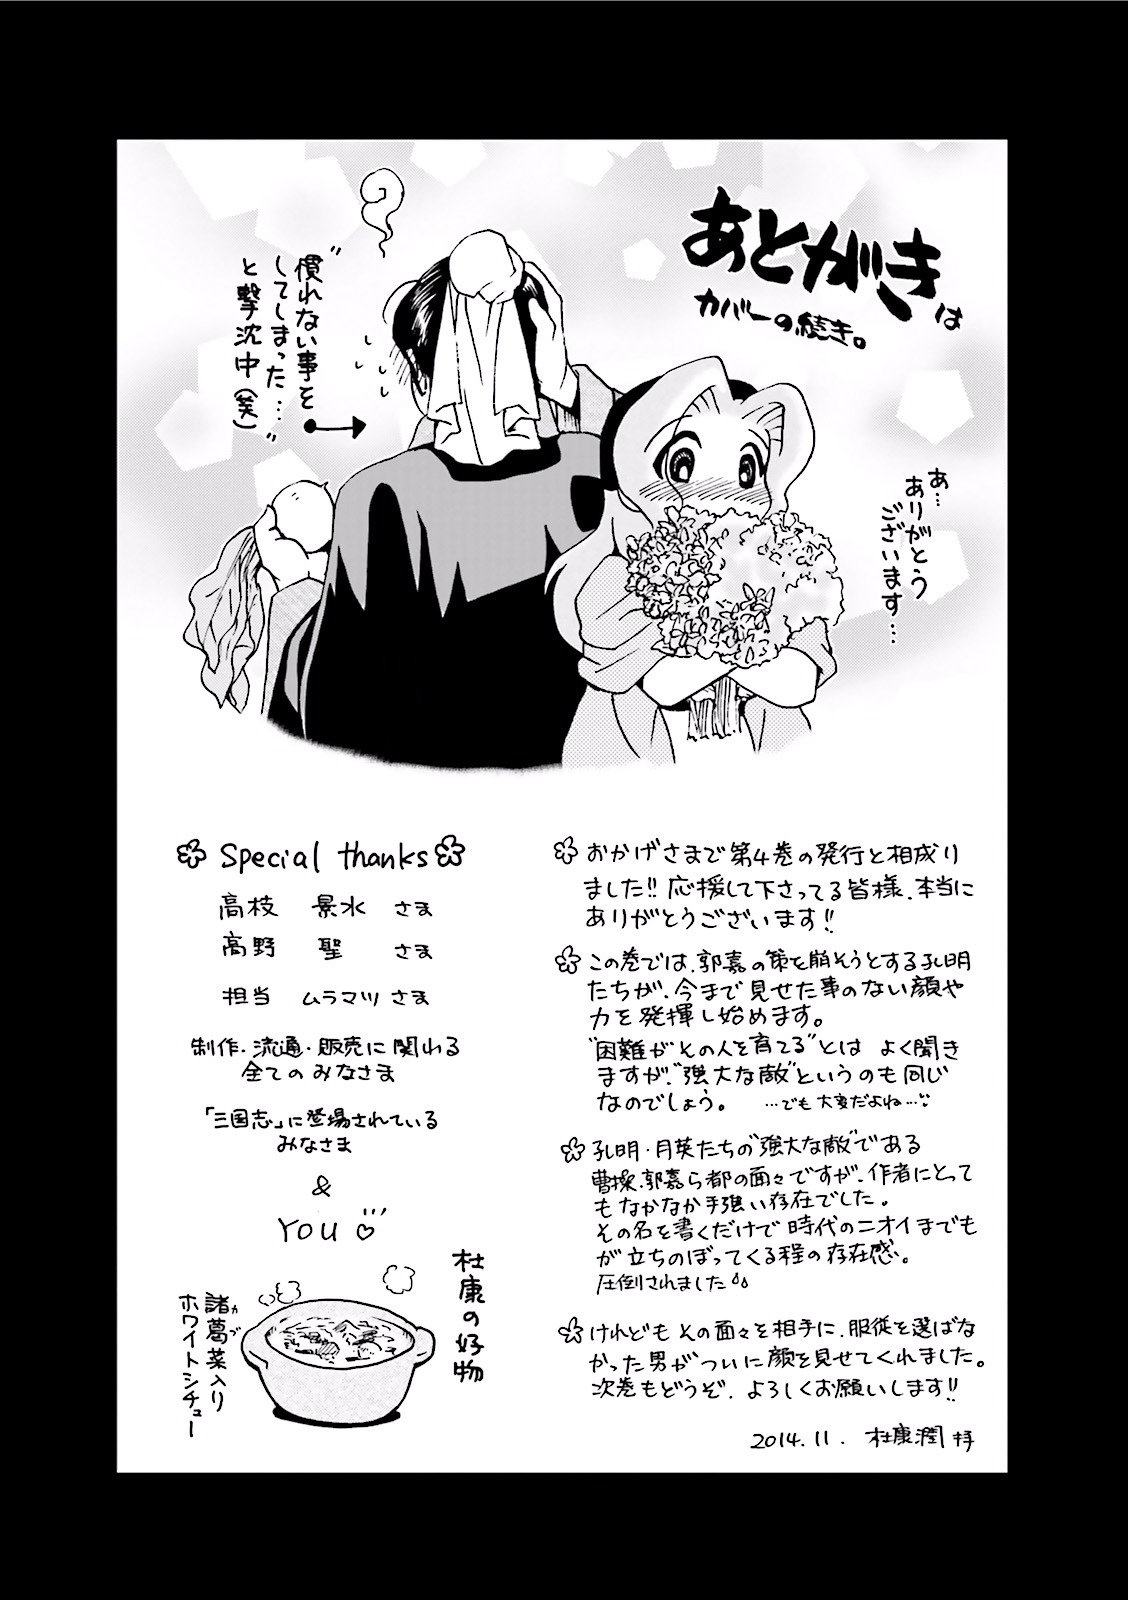 あとがきは
カバーの続き。
“慣れない事を
してしまった…”
と撃沈中(笑)
あ…
ありがとう
ございます…
おかげさまで第4巻の発行と相成り
ました!!応援して下さってる皆様、本当に
ありがとうございます!!
この巻では、郭嘉の策を崩そうとする孔明
たちが、今まで見せた事のない顔や
力を発揮し始めます。
“困難がその人を育てる”とは よく聞き
ますが、“強大な敵”というのも同じ
なのでしょう。 …でも大変だよね…
孔明・月英たちの“強大な敵”である
曹操、郭嘉ら都の面々ですが、作者にとって
もなかなか手強い存在でした。
その名を書くだけで時代のニオイまでも
が立ちのぼってくる程の存在感。
圧倒されました
けれどもその面々を相手に、服従を選ばな
かった男がついに顔を見せてくれました。
次巻もどうぞ、よろしくお願いします!!
2014.11. 杜康潤 拝
Special thanks
高枝 景水 さま
高野 聖 さま
担当 ムラマツさま
制作・流通・販売に関わる
全てのみなさま
「三国志」に登場されている
みなさま
&
YOU♡
杜康の好物
諸葛菜入り
カブ
ホワイトシチュー